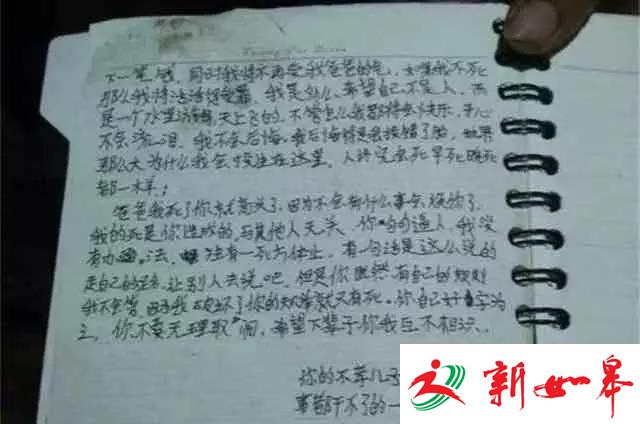 下一笔钱，同时我将不再受我爸爸的气，如果我不死
那么我将活活得受罪，我是多么希望自己不是人，而
是一个水里游 天上飞的，不管怎么我都将会快乐，开心
不会流泪，我不会后悔，我后悔 是我投错了胎，世界
那么大为什么我会投生在这里，人终究会死早死晚死
都一样；
爸爸我死了你就高兴了，因为不会有什么事会烦你了，
我的死是你造成的，与其他人无关，你句句逼人，我没
有办法，唯独有一死为休止，有一句话是这么说的
走自己的路，让别人去说吧，但是你既然有自己的规则
我不会管，因为我破坏了你的规矩就只有死。你自己好自为
之，你不要无理取闹，希望下辈子你我互不相识。
你的不孝儿子
事都干不了的一
新如皋